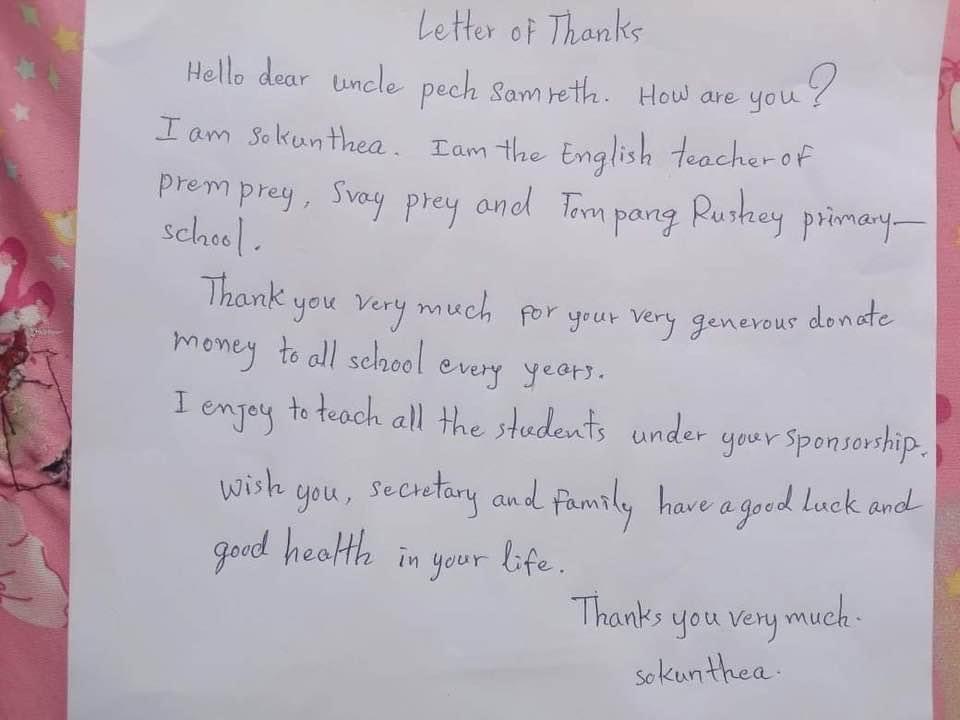 Letter of Thanks
Hello dear uncle pech Samreth. How are you?
I am sokunthea. I am the English teacher of
prem prey, Svay prey and Tompang Ruskey primary-
school.
Thank you very much for your very generous donate
money to all school every years.
I enjoy to teach all the students under your sponsorship.
wish you, secretary and family have a good luck and
good health in your life.
Thanks you very much.
sokunthea.